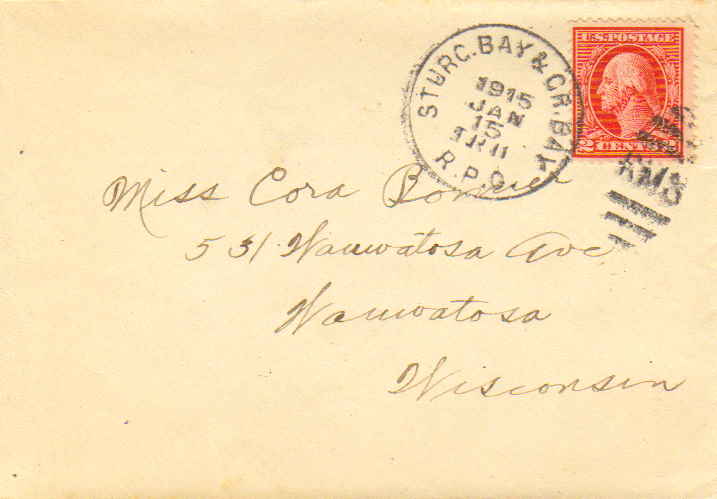 STURG. BAY & GR. BAY
1915
JAN
15
R.P.O.
U.S. POSTAGE
2 CENTS 2
RMS
Miss Cora
531 Wauwatosa Ave
Wauwatosa
Wisconsin